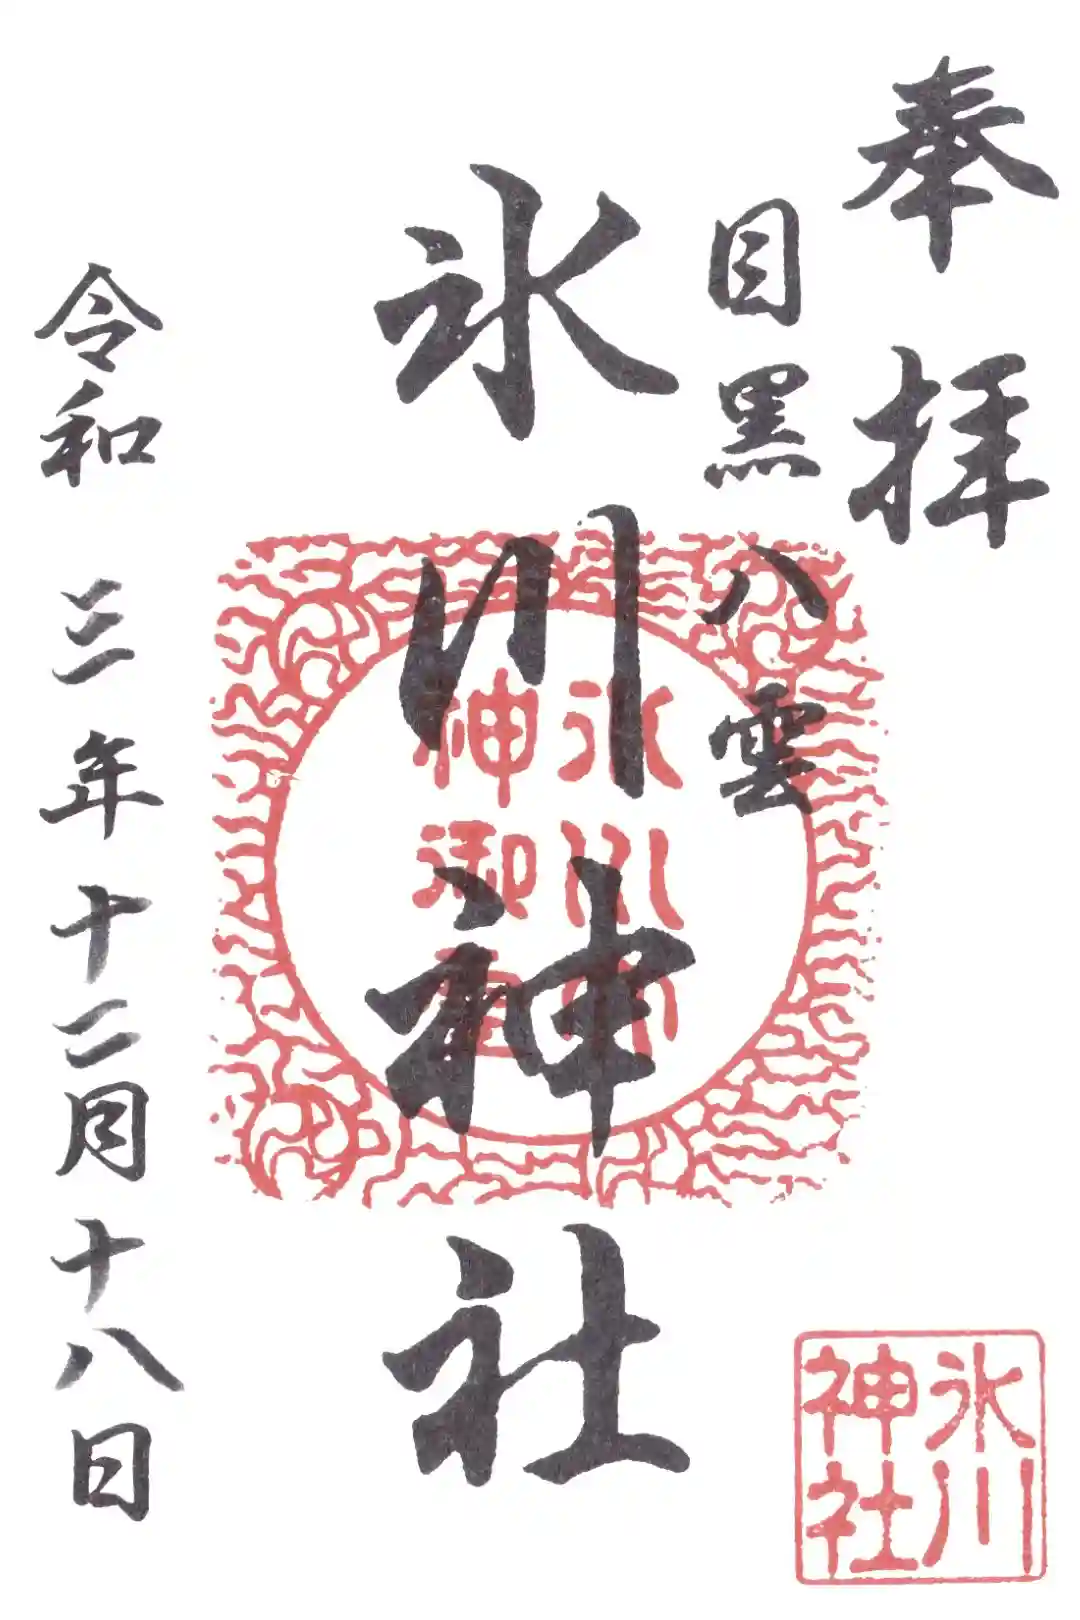 奉拝
目黒八雲
氷川神社
令和三年十二月十八日
氷川
神社